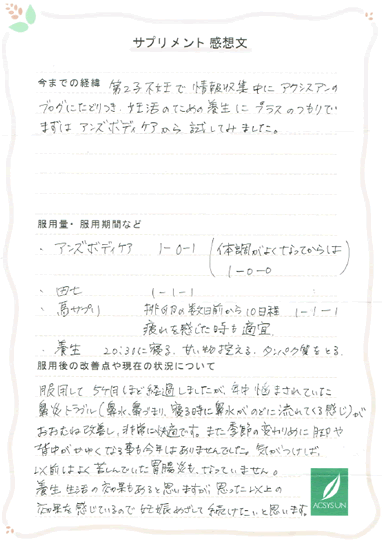 サプリメント 感想文
今までの経緯 第2子不妊で情報収集中にアクシスアンの
ブログにたどりつき、妊活のための養生にプラスのつもりで
まずはアンズボディケアから試してみました。
服用量・服用期間など
・ アンズボディケア 1-0-1 (体調がよくなってからは
1-0-0)
・ 田七 1-1-1
・ 馬サプリ 排卵日の数日前から10日程 1-1-1
疲れを感じた時も適宜
・ 養生 20:30に寝る、甘い物控える、タンパク質をとる
服用後の改善点や現在の状況について
服用して5ヶ月ほど経過しましたが、年中悩まされていた
鼻炎トラブル(鼻水、鼻づまり、寝る時に鼻水がのどに流れてくる感じ)が
おおむね改善し、非常に快適です。また季節の変わりめに脚や
背中がかゆくなる事も今年はありませんでした。気がつけば、
以前はよく苦しんでいた胃腸炎も、なっていません。
養生生活の効果もあると思いますが、思った以上の
効果を感じているので妊娠めざして続けたいと思います。
ACSYSUN